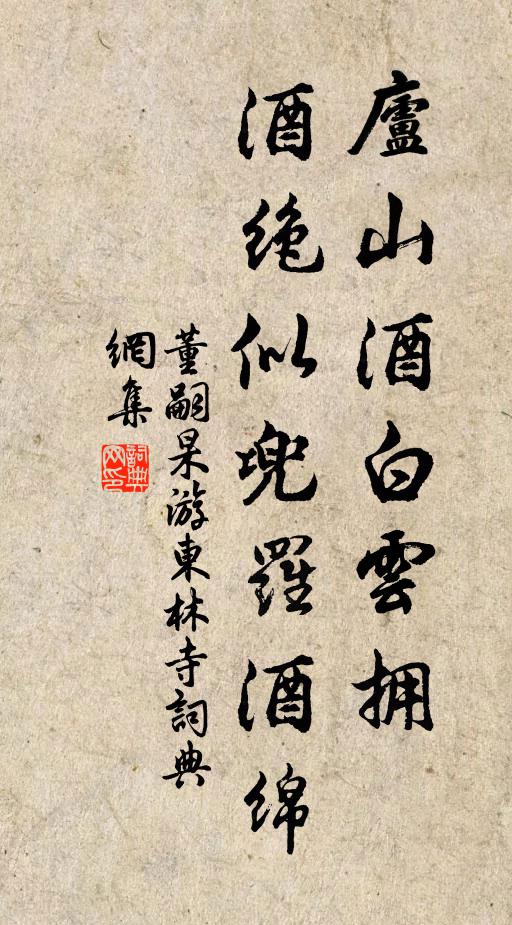 廬山酒白雲拥
酒絶似兜羅酒綿
董嗣杲游東林寺詞典
網集
詞典網印